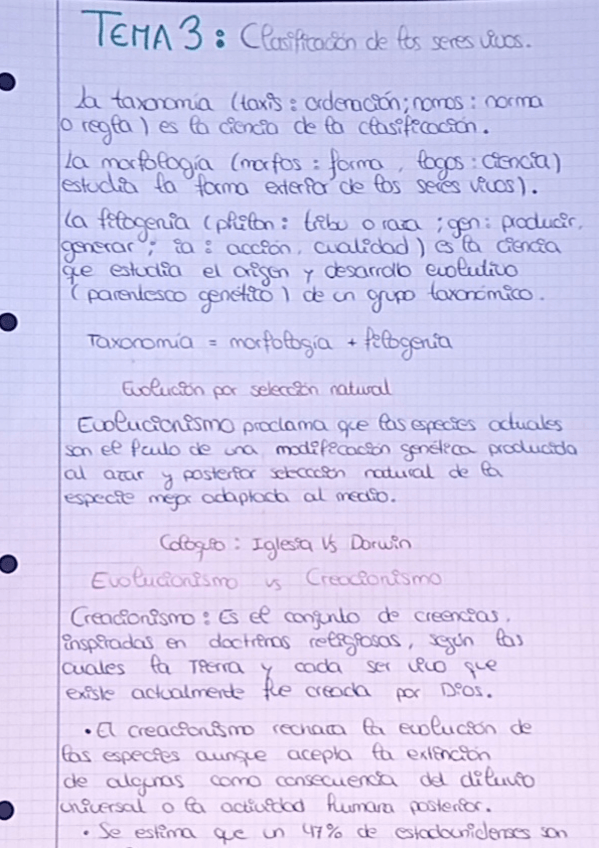 TEMA 3: Clasificación de los seres vivos.
La taxonomía (taxis: ordenación; nomos: norma
o regla) es la ciencia de la clasificación.
La morfología (morfos: forma, logos: ciencia)
estudia la forma exterior de los seres vivos).
La filogenia (philon: tribu o raza; gen: producir,
generar; ia: acción, cualidad) es la ciencia
que estudia el origen y desarrollo evolutivo
(parentesco genético) de un grupo taxonómico.
Taxonomía = morfología + filogenia
Evolución por selección natural
Evolucionismo proclama que las especies actuales
son el fruto de una modificación genética producida
al azar y posterior selección natural de la
especie mejor adaptada al medio.
Coloquio: Iglesia Vs Darwin
Evolucionismo vs Creacionismo
Creacionismo: Es el conjunto de creencias,
inspiradas en doctrinas religiosas, según las
cuales la Tierra y cada ser vivo que
existe actualmente fue creada por Dios.
• El creacionismo rechaza la evolución de
las especies aunque acepta la extinción
de algunas como consecuencia del diluvio
universal o la actividad humana posterior.
• Se estima que un 47% de estadounidenses son